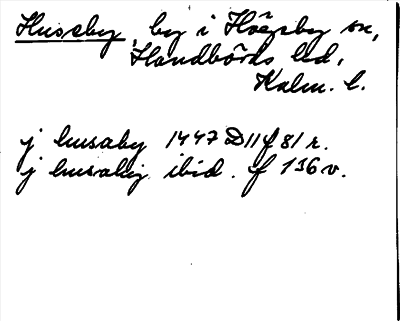 Husseby, by i Högsby sn,
Handbörds hd,
Kalm. l.
j husaby 1447 D11 f 81 r.
j husabij ibid. f 136 v.